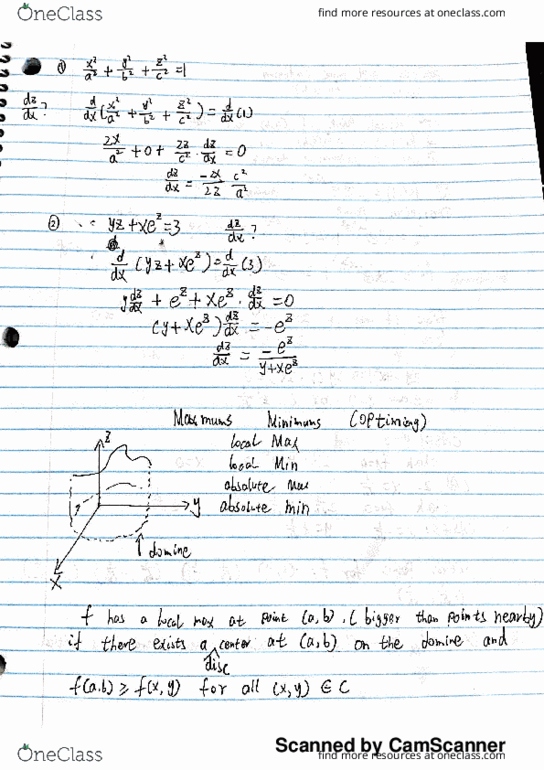 OneClass
find more resources at oneclass.com
① x²/a² + y²/b² + z²/c² = 1
dz/dx? d/dx (x²/a² + y²/b² + z²/c²) = d/dx (1)
2x/a² + 0 + 2z/c² · dz/dx = 0
dz/dx = -2x/2z c²/a²
② yz + xe^z = 3 dz/dx?
d/dx (yz + xe^z) = d/dx (3)
y dz/dx + e^z + xe^z · dz/dx = 0
(y + xe^z) dz/dx = -e^z
dz/dx = -e^z/y+xe^z
Maxmums Minimums (optiming)
local Max
local Min
absolute Max
absolute min
z
y
x
domine
f has a local max at point (a,b), ( bigger than points nearby)
if there exists a disc center at (a,b) on the domine and
f(a,b) ≥ f(x,y) for all (x,y) ∈ C
Scanned by CamScanner
OneClass
find more resources at oneclass.com